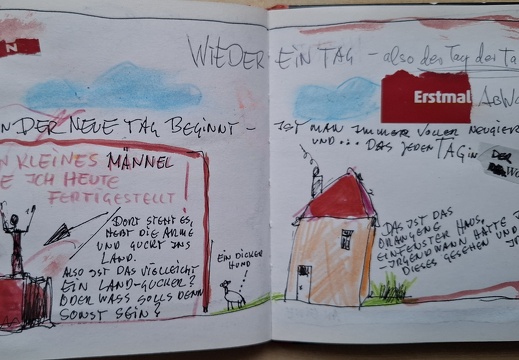 N
WIEDER EIN TAG – also der Tag der Ta
Erstmal ABW
N DER NEUE TAG BEGINNT –
IST MAN IMMER VOLLER NEUGIER
UND... DAS JEDEN TAG in
DER
WO
N KLEINES MÄNNEL
E ICH HEUTE
FERTIGGESTELLT!
DORT STEHT ES,
HEBT DIE ARME
UND GUCKT INS
LAND.
ALSO IST DAS VIELLEICHT
EIN LAND-GUCKER?
ODER WASS SOLLS DENN
SONST SEIN?
EIN DICKER
HUND
DAS IST DAS
ORANGENE
EINFENSTER HAUS,
IRGENDWANN HATTE I
DIESES GESEHEN UND